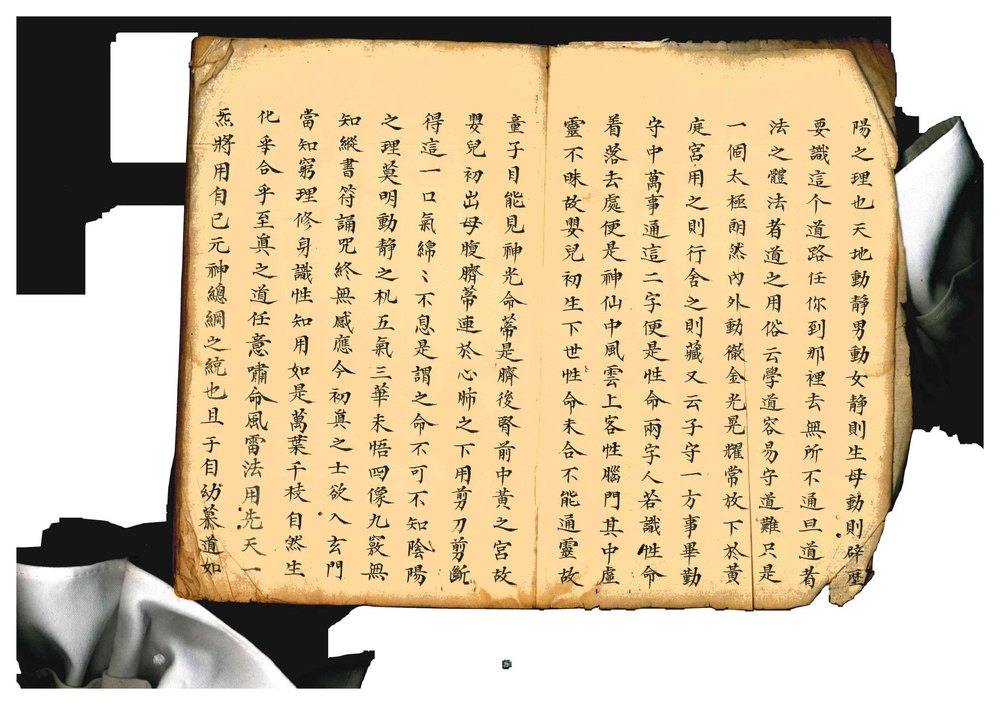 陽之理也天地動靜男動女靜則生母動則辟歴
要識這个道路任你到那裡去無所不通旦道者
法之體法者道之用俗云學道容易守道難只是
一個太極朗然內外動徹金光晃耀常放下於黃
庭宮用之則行舍之則藏又云子守一方事畢勤
守中萬事通這二字便是性命兩字人若識性命
着落去處便是神仙中風雲上客性腦門其中虛
靈不昧故嬰兒初生下世性命未合不能通靈故
童子目能見神光命蒂是臍後腎前中黃之宮故
嬰兒初出母腹臍蒂連於心肺之下用剪刀剪斷
得這一口氣綿〻不息是謂之命不可不知陰陽
之理莫明動靜之札五氣三華未悟四像九竅無
知縱書符誦咒終無感應今初真之士欲入玄門
當知窮理修身識性知用如是萬葉千枝自然生
化乎合乎至真之道任意嘯命風雷法用先天一
炁將用自已元神總綱之統也且于自幼慕道如